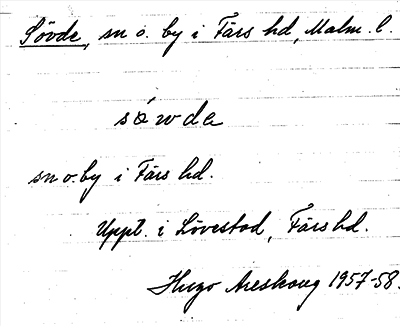 Sövde, sn o. by i Färs hd, Malm. l.
sǿwda
sn o. by i Färs hd.
Uppt. i Lövestad, Färs hd.
Hugo Areskoug 1957-58.